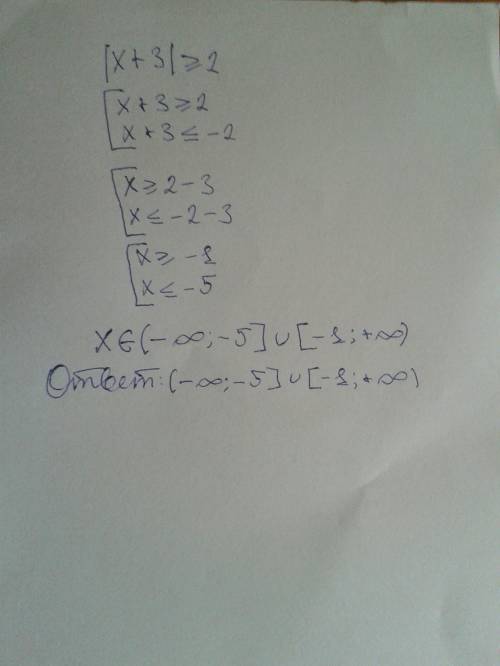 |x+3|≥2
[x+3≥2
x+3≤-2
[x≥2-3
x≤-2-3
[x≥-1
x≤-5
x∈(-∞;-5]∪[-1;+∞)
Ответ:(-∞;-5]∪[-1;+∞)